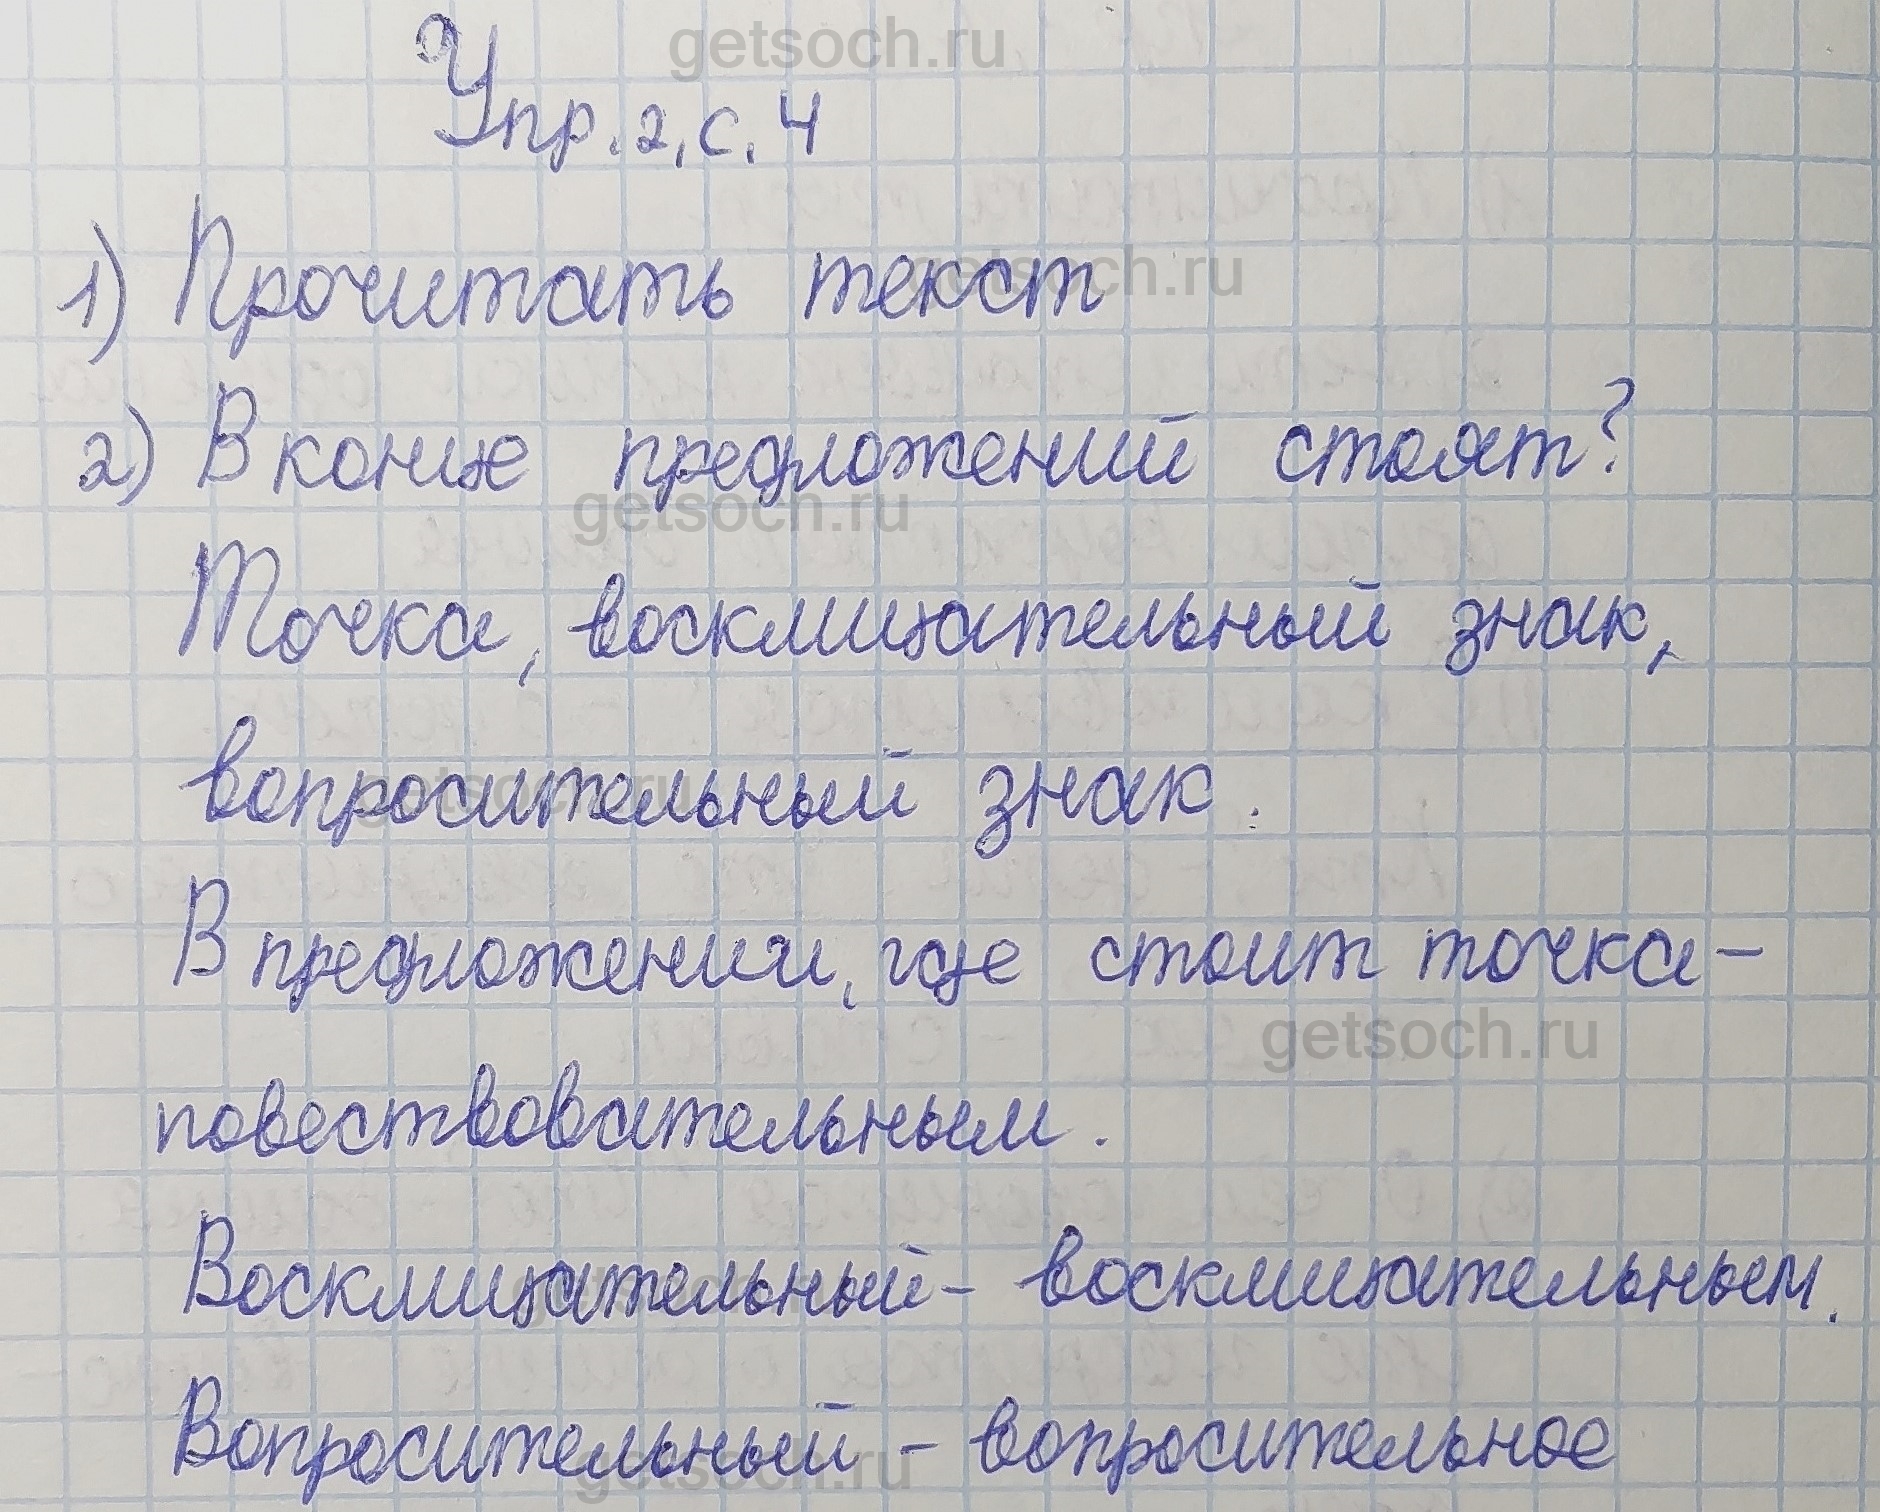 getsoch.ru
Упр. 2, с. 4
1) Прочитать текст
getsoch.ru
2) В конце предложений стоят?
getsoch.ru
Точка, восклицательный знак,
вопросительный знак.
getsoch.ru
В предложении, где стоит точка -
getsoch.ru
повествовательным.
Восклицательный - восклицательным.
getsoch.ru
Вопросительный - вопросительное
getsoch.ru